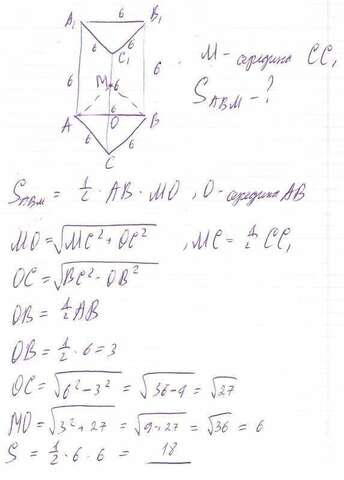 A₁ 6 B₁
6 6
C₁
6 M 6 6
A 6 B
O
6 6
C
M - середина CC₁
S_ABM - ?
S_ABM = 1/2 · AB · MO , O - середина AB
MO = √(MC² + OC²) , MC = 1/2 CC₁
OC = √(BC² - OB²)
OB = 1/2 AB
OB = 1/2 · 6 = 3
OC = √(6² - 3²) = √(36 - 9) = √27
MO = √(3² + 27) = √(9 + 27) = √36 = 6
S = 1/2 · 6 · 6 = 18